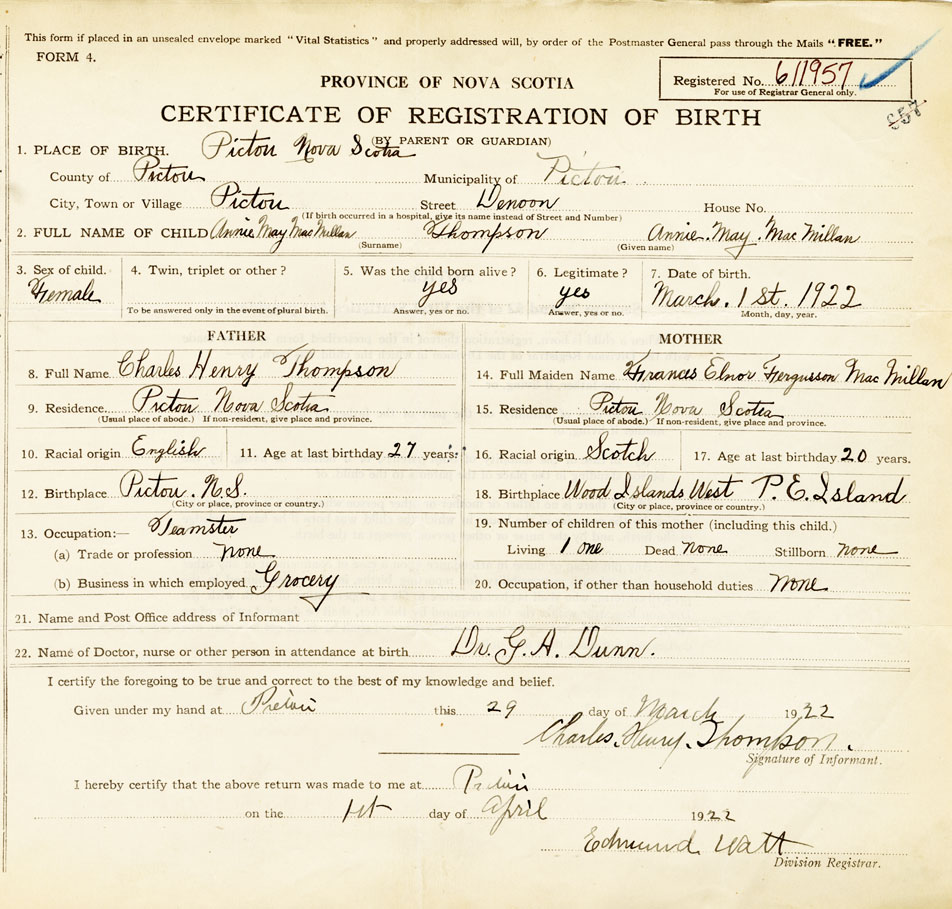 This form if placed in an unsealed envelope marked "Vital Statistics" and properly addressed will, by order of the Postmaster General pass through the Mails "FREE."
FORM 4.
Registered No. 611957
For use of Registrar General only.
PROVINCE OF NOVA SCOTIA
CERTIFICATE OF REGISTRATION OF BIRTH
(BY PARENT OR GUARDIAN)
1. PLACE OF BIRTH. Pictou Nova Scotia
County of Pictou Municipality of Pictou
City, Town or Village Pictou Street Denoon House No.
(If birth occurred in a hospital, give its name instead of Street and Number)
2. FULL NAME OF CHILD Annie May MacMillan Thompson Annie. May. Mac Millan
(Surname) (Given name)
3. Sex of child. 4. Twin, triplet or other? 5. Was the child born alive? 6. Legitimate? 7. Date of birth.
Female yes yes March. 1st. 1922
To be answered only in the event of plural birth. Answer, yes or no. Answer, yes or no. Month, day, year.
FATHER
8. Full Name Charles Henry Thompson
9. Residence Pictou Nova Scotia
(Usual place of abode.) If non-resident, give place and province.
10. Racial origin English 11. Age at last birthday 27 years.
12. Birthplace Pictou. N.S.
(City or place, province or country.)
13. Occupation:— Teamster
(a) Trade or profession none
(b) Business in which employed Grocery
MOTHER
14. Full Maiden Name Frances Elnor Fergusson Mac Millan
15. Residence Pictou Nova Scotia
(Usual place of abode.) If non-resident, give place and province.
16. Racial origin Scotch 17. Age at last birthday 20 years.
18. Birthplace Wood Islands West P.E. Island
(City or place, province or country.)
19. Number of children of this mother (including this child.)
Living 1 one Dead none Stillborn none
20. Occupation, if other than household duties None
21. Name and Post Office address of Informant
22. Name of Doctor, nurse or other person in attendance at birth Dr. G. A. Dunn.
I certify the foregoing to be true and correct to the best of my knowledge and belief.
Given under my hand at Pictou this 29 day of March 1922
Charles. Henry. Thompson.
Signature of Informant.
I hereby certify that the above return was made to me at Pictou
on the 1st day of April 1922
Edmund Watt
Division Registrar.